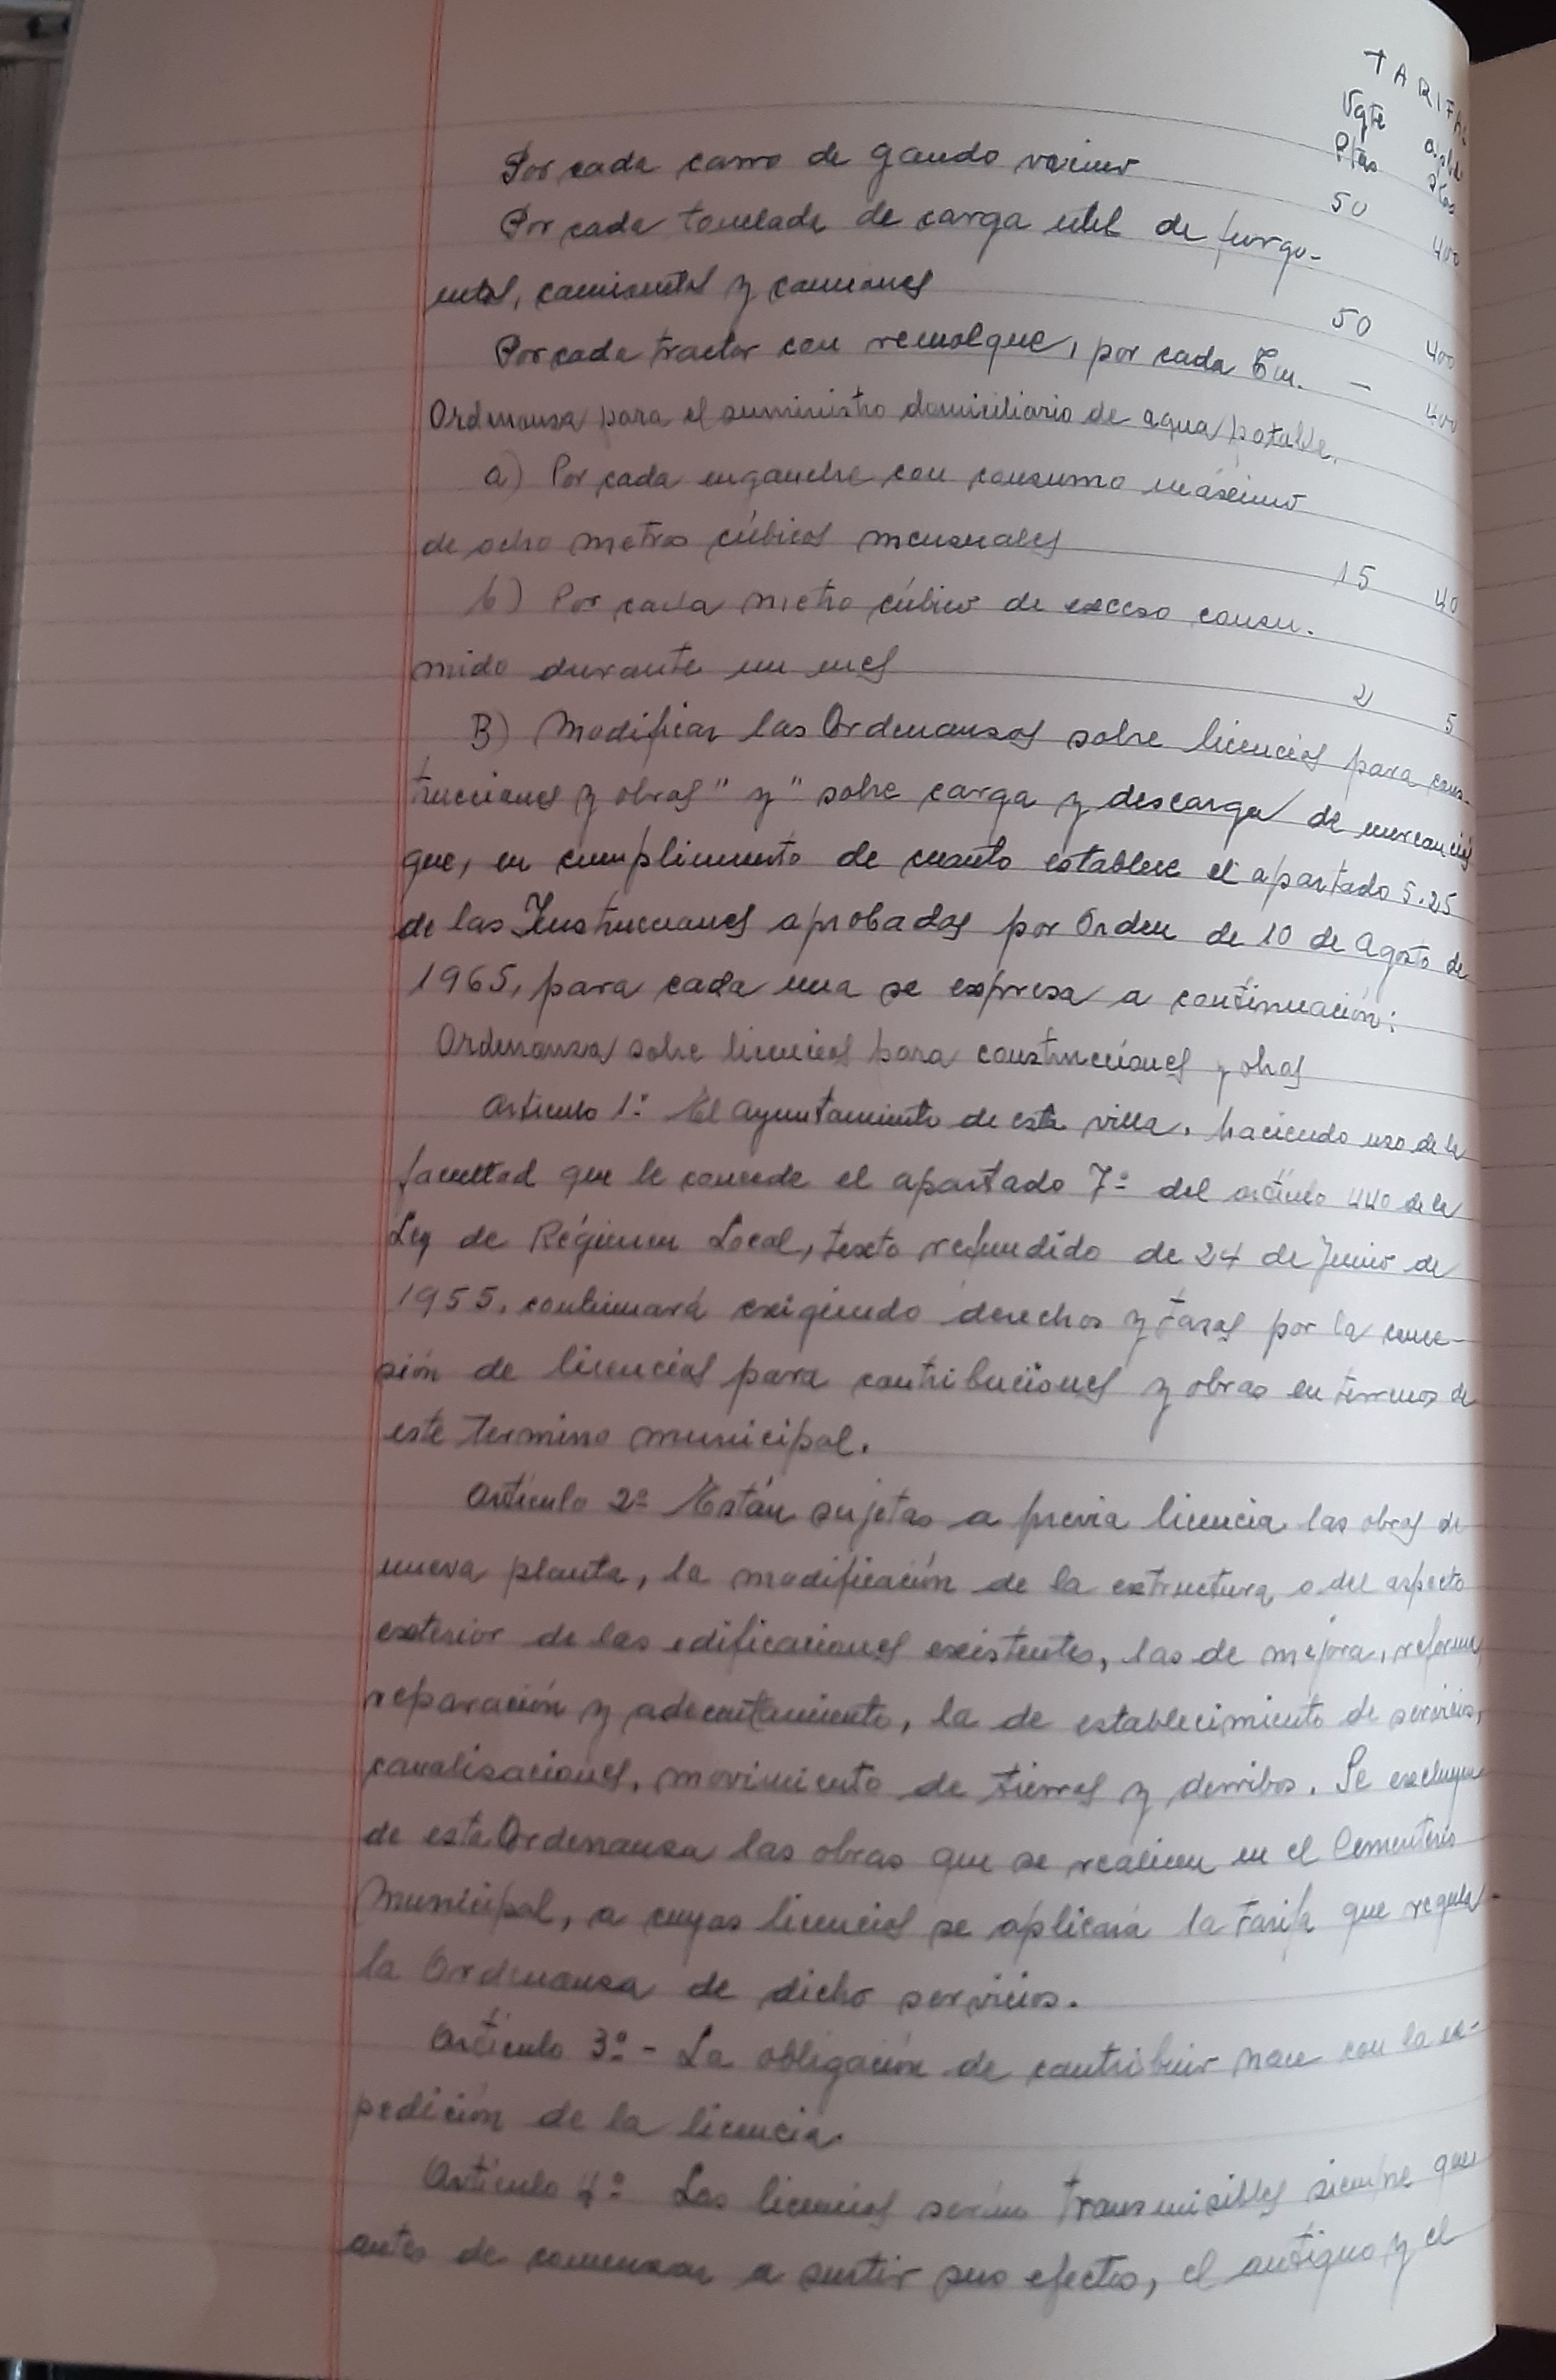 TARIFAS
Vgte aplb
Ptas Ptas
Por cada carro de ganado vacuno 50 400
Por cada tonelada de carga util de furgo-
netas, camionetas y camiones 50 400
Por cada tractor con remolque, por cada Tm. — 400
Ordenansa para el suministro domiciliario de agua potable.
a) Por cada enganche con consumo máximo
de ocho metros cúbicos mensuales 15 40
b) Por cada metro cúbico de exceso consu-
mido durante un mes 2 5
B) Modificar las Ordenansas sobre licencias para cons-
trucciones y obras" y "sobre carga y descarga de mercancías
que, en cumplimiento de cuanto establece el apartado 5.25
de las Instrucciones aprobadas por Orden de 10 de Agosto de
1965, para cada una se expresa a continuación:
Ordenansa sobre licencias para construcciones y obras
Artículo 1º El Ayuntamiento de esta villa, haciendo uso de la
facultad que le concede el apartado 7º del artículo 440 de la
Ley de Régimen Local, texto refundido de 24 de Junio de
1955, continuará exigiendo derechos y tasas por la conce-
sión de licencias para contribuciones y obras en terrenos de
este termino municipal.
Artículo 2º Están sujetas a previa licencia las obras de
nueva planta, la modificación de la estructura o del aspecto
exterior de las edificaciones existentes, las de mejora, reforma,
reparación y adecentamiento, la de establecimiento de servicios,
canalisaciones, movimiento de tierras y derribos. Se excluyen
de esta Ordenansa las obras que se realicen en el Cementerio
Municipal, a cuyas licencias se aplicará la tarifa que regula
la Ordenansa de dicho servicios.
Artículo 3º - La obligación de contribuir nace con la ex-
pedición de la licencia.
Artículo 4º Las licencias serán transmisibles siempre que
antes de comensar a surtir sus efectos, el antiguo y el